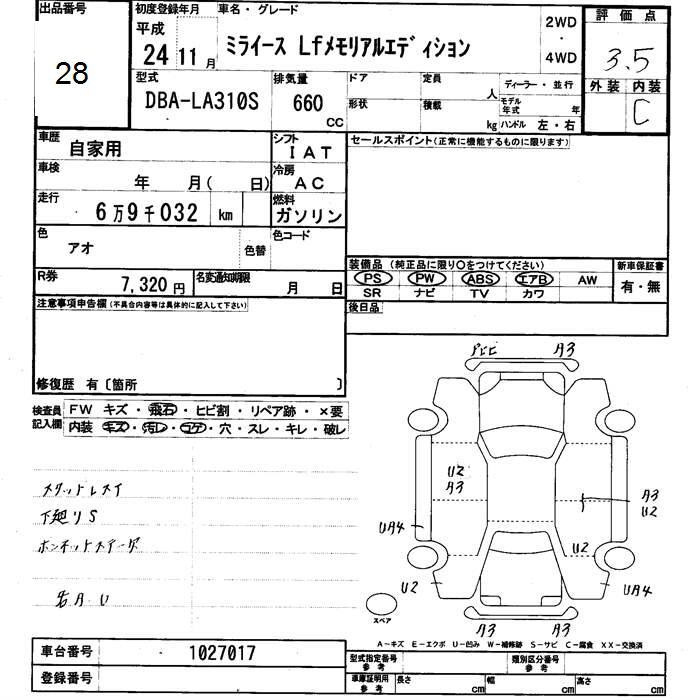 出品番号
28
初度登録年月
平成
24 11月
車名・グレード
ミライース Lfメモリアルエディション
2WD
・
4WD
評価点
3.5
外装 内装
C
型式
DBA-LA310S
排気量
660
CC
ドア
定員
人
形状
積載
kg
ディーラー・並行
モデル年式
年
ハンドル 左・右
車歴
自家用
シフト
IAT
車検
年 月( 日)
冷房
AC
走行
6万9千032 km
燃料
ガソリン
色
アオ
色替
色コード
R券
7,320円
名変通知期限
月 日
セールスポイント(正常に機能するものに限ります)
装備品(純正品に限り〇をつけてください)
PS PW ABS エアB AW
SR ナビ TV カワ
新車保証書
有・無
後日品
注意事項申告欄(不具合内容等は具体的に記入して下さい)
修復歴 有〔箇所 〕
検査員記入欄
FW キズ・飛石・ヒビ割・リペア跡・×要
内装 キズ・汚レ・コゲ・穴・スレ・キレ・破レ
下廻りS
A3
U2
A3
A3
U2
UA4
U2
U2
UA4
A3
A3
スペア
A-キズ E-エクボ U-凹み W-補修跡 S-サビ C-腐食 XX-交換済
車台番号
1027017
登録番号
型式指定番号
参考
類別区分番号
参考
車庫証明用
参考
長さ
cm
幅
cm
高さ
cm